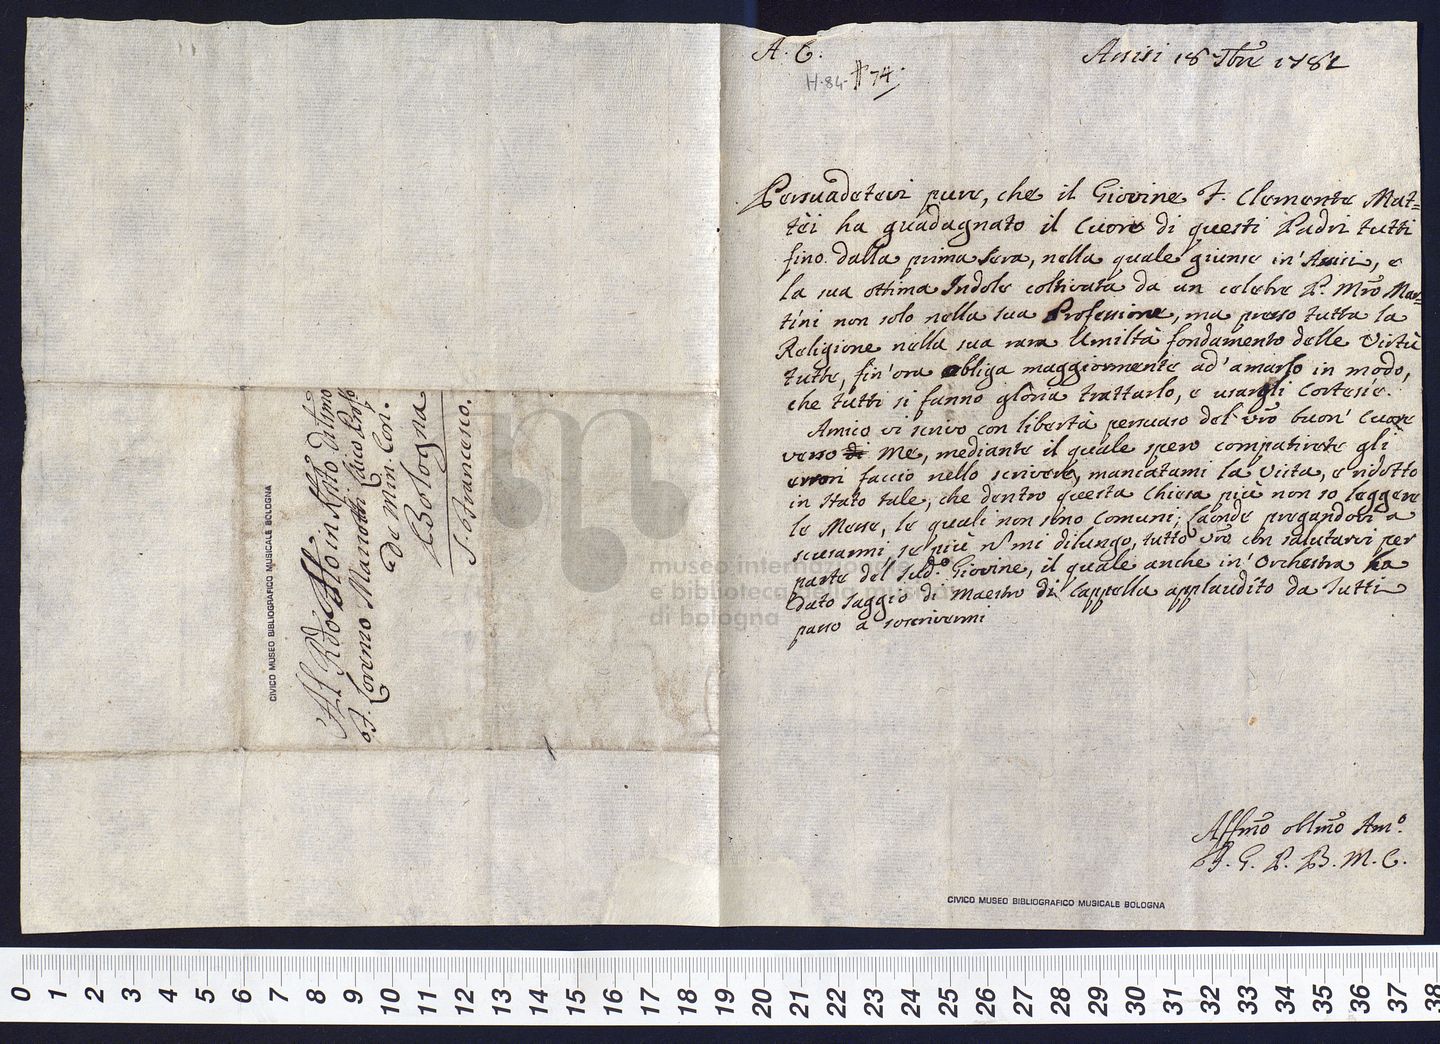 A. C.
Assisi 18 7bre 1781
H.84
74.
Persuadetevi pure, che il Giovine F. Clemente Mat=
tei ha guadagnato il Cuore di questi Padri tutti
fino dalla prima sera, nella quale giunse in' Assisi, e
la sua ottima Indole coltivata da un celebre P. Mro Mar=
tini non solo nella sua Professione, ma presso tutta la
Religione nella sua rara Umiltà fondamento delle Virtù
tutte, fin'ora obliga maggiormente ad' amarlo in modo,
che tutti si fanno gloria trattarlo, e usargli Cortesie.
Amico vi scrivo con libertà persuaso del vro buon' Cuore
verso di Me, mediante il quale spero compatirete gli
errori faccio nello scrivere, mancatami la Vista, e ridotto
in Stato tale, che dentro questa Chiesa più non so leggere
le Messe, le quali non sono Comuni; Laonde pregandovi a
scusarmi se più nn mi dilungo, tutto vro con salutarvi per
parte del sudo Giovine, il quale anche in' Orchestra ha
dato saggio di Maestro di Cappella applaudito da Tutti
passo a soscrivermi
Affmo oblmo Amo.
F. G. P. B. M. C.
CIVICO MUSEO BIBLIOGRAFICO MUSICALE BOLOGNA
Al Rdo in Xpto Dilmo
F. Lorenzo
de Min. Con.
Bologna
S. Francesco.
CIVICO MUSEO BIBLIOGRAFICO MUSICALE BOLOGNA
museo internazionale
e biblioteca della musica
di bologna
0 1 2 3 4 5 6 7 8 9 10 11 12 13 14 15 16 17 18 19 20 21 22 23 24 25 26 27 28 29 30 31 32 33 34 35 36 37 38